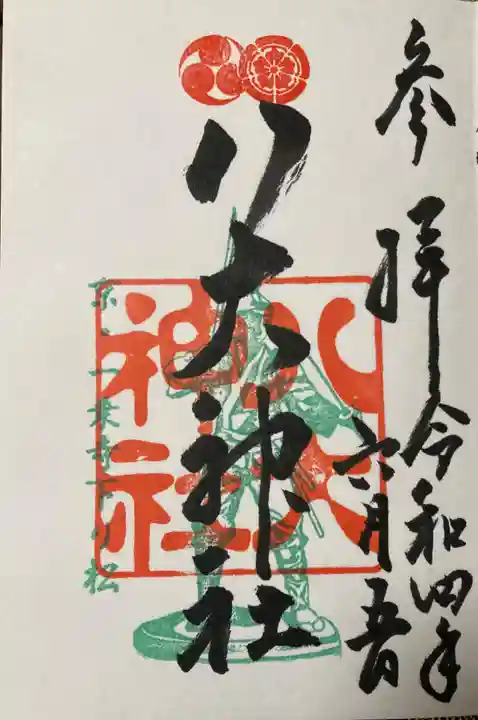 参拝 令和四年
六月吾日
八大神社
八大
神社
京 一乗寺下り松